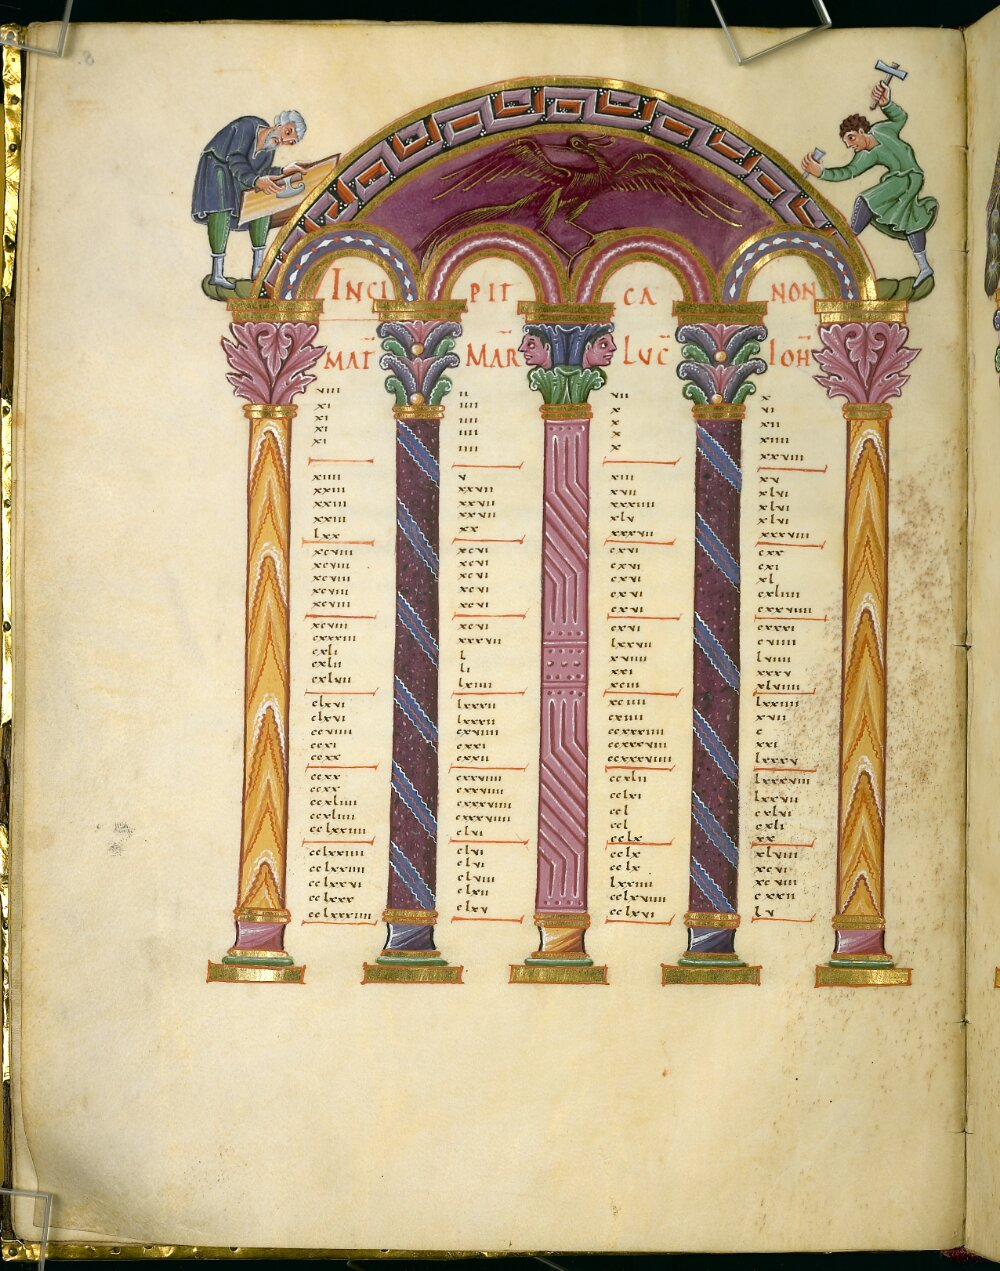 INCI PIT CA NON
MAT̄ MAR̄ LUC̄ IOH̄
viii ii vii x
xi iiii x vi
xi iiii x xii
xi iiii x xiiii
xi iiii x xxviii
xiiii v xiii xv
xxiii xxvii xvii xlvi
xxiii xxvii xxxiiii xlvi
xxiii xxvii xlv xlvi
lxx xx xxxvii xxxviii
xcviii xcvi cxvi cxx
xcviii xcvi cxvi cxi
xcviii xcvi cxvi xl
xcviii xcvi cxvi cxliiii
xcviii xcvi cxvi cxxviiii
xcviii xcvi cxvi cxxxi
cxxxiii xxxvii lxxvii cviiii
cxli l xviiii lviiii
cxlii li xxi xxxv
cxlvii lxiiii xciii xlviiii
clxvi lxxxii xciiii lxxiiii
clxvi lxxxii cxiiii xvii
ccviiii cxviiii ccxxxiiii c
ccxi cxxi ccxxxviii xxi
ccxx cxxii ccxxxviiii lxxxv
ccxx cxxviiii ccxlii lxxxviii
ccxx cxxviiii cclxi lxxvii
ccxliiii cxxxviiii ccl cxlvi
ccxliiii cxxxviiii ccl cxli
cclxxiiii clvi cclx xx
cclxxiiii clvi cclx xlviii
cclxxiiii clvi cclx xcvi
cclxxvi clviii lxxiiii xcviii
cclxxx clxii cclxxviiii cxxii
cclxxxiiii clxv cclxvi lv